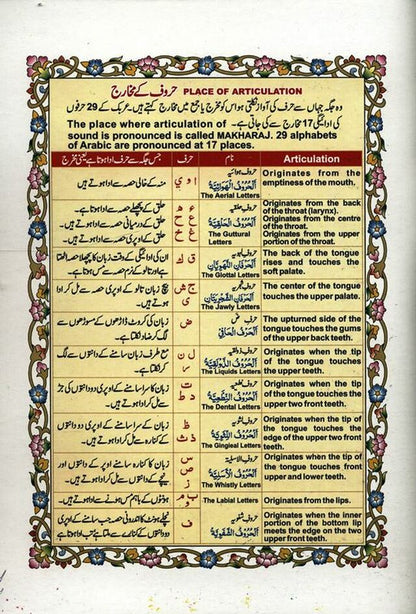 حروف کے مخارج PLACE OF ARTICULATION
وہ جگہ جہاں سے حرف کی آواز نکلتی ہو اس کو مخرج یا جمع میں مخارج کہتے ہیں۔ عربک کے 29 حرفوں
کی ادائیگی 17 مخارج سے کی جاتی ہے۔
The place where articulation of
sound is pronounced is called MAKHARAJ. 29 alphabets
of Arabic are pronounced at 17 places.
جس جگہ سے حرف ادا ہوتا ہے یعنی مخرج حرف نام Articulation
منہ کے خالی حصہ سے ادا ہوتے ہیں
ا و ي
حروف ہوائیہ
اَلْحُرُوْفُ الْهَوَائِيَّةُ
The Aerial Letters
Originates from the
emptiness of the mouth.
حلق کے پچھلے حصہ سے ادا ہوتا ہے۔
حلق کے درمیانی حصہ سے ادا ہوتے ہیں۔
حلق کے اوپری حصہ سے ادا ہوتے ہیں۔
ء ه
ع ح
غ خ
حروف حلقیہ
اَلْحُرُوْفُ الْحَلْقِيَّةُ
The Guttural
Letters
Originates from the back of
the throat (larynx).
Originates from the centre
of the throat.
Originates from the upper
portion of the throat.
ان کی ادائیگی کے وقت زبان کا پچھلا حصہ اٹھتا
ہے اور تالو کے نرم حصہ سے مس ہوتا ہے۔
ق ك
The Glottal Letters
The back of the tongue
rises and touches the
soft palate.
بیچ زبان تالو کے اوپری حصہ سے مل کر ادا
ہوتے ہیں۔
ج ش
ي
The Jawly Letters
The center of the tongue
touches the upper palate.
زبان کی کروٹ ڈاڑھوں کے مسوڑھوں سے
لگ کر ضاد نکلتا ہے۔
ض
The upturned side of the
tongue touches the gums
of the upper back teeth.
طرف زبان سامنے کے دانتوں سے لگ
کر نکلتا ہے۔
ل ن
ر
The Liquids Letters
Originates when the tip
of the tongue touches
the upper teeth.
زبان کا سرا سامنے کے اوپری دو دانتوں کی جڑ
سے مل کر ادا ہوتے ہیں۔
ت
د ط
The Dental Letters
Originates when the tip
of the tongue touches
the upper two front teeth.
زبان کے سرا سامنے کے اوپری دو دانتوں
کے کنارہ سے مل کر ادا ہوتے ہیں۔
ظ
ذ ث
The Gingieal Letters
Originates when the tip of
the tongue touches the
edge of the upper two front
teeth.
زبان کا کنارہ سامنے کے اوپر کے دانتوں اور
نیچے کے دانتوں سے مل کر ادا ہوتے ہیں۔
س
ص
ز
The Whistly Letters
Originates when the tip
of the tongue touches front
upper and lower teeth.
ہونٹوں کے باہم مس ہونے سے ادا ہوتے ہیں۔
ب م
و
The Labial Letters
Originates from the lips.
نچلے ہونٹ کا اندرونی حصہ جب سامنے کے اوپری
دو دانتوں کے کنارے سے ملتا ہے تب ادا ہوتا ہے
ف
Originates when the inner
portion of the bottom lip
meets the edge on the two
upper front teeth.